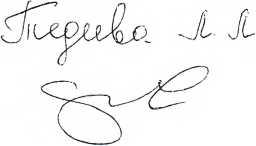 Тедеева Л. Л